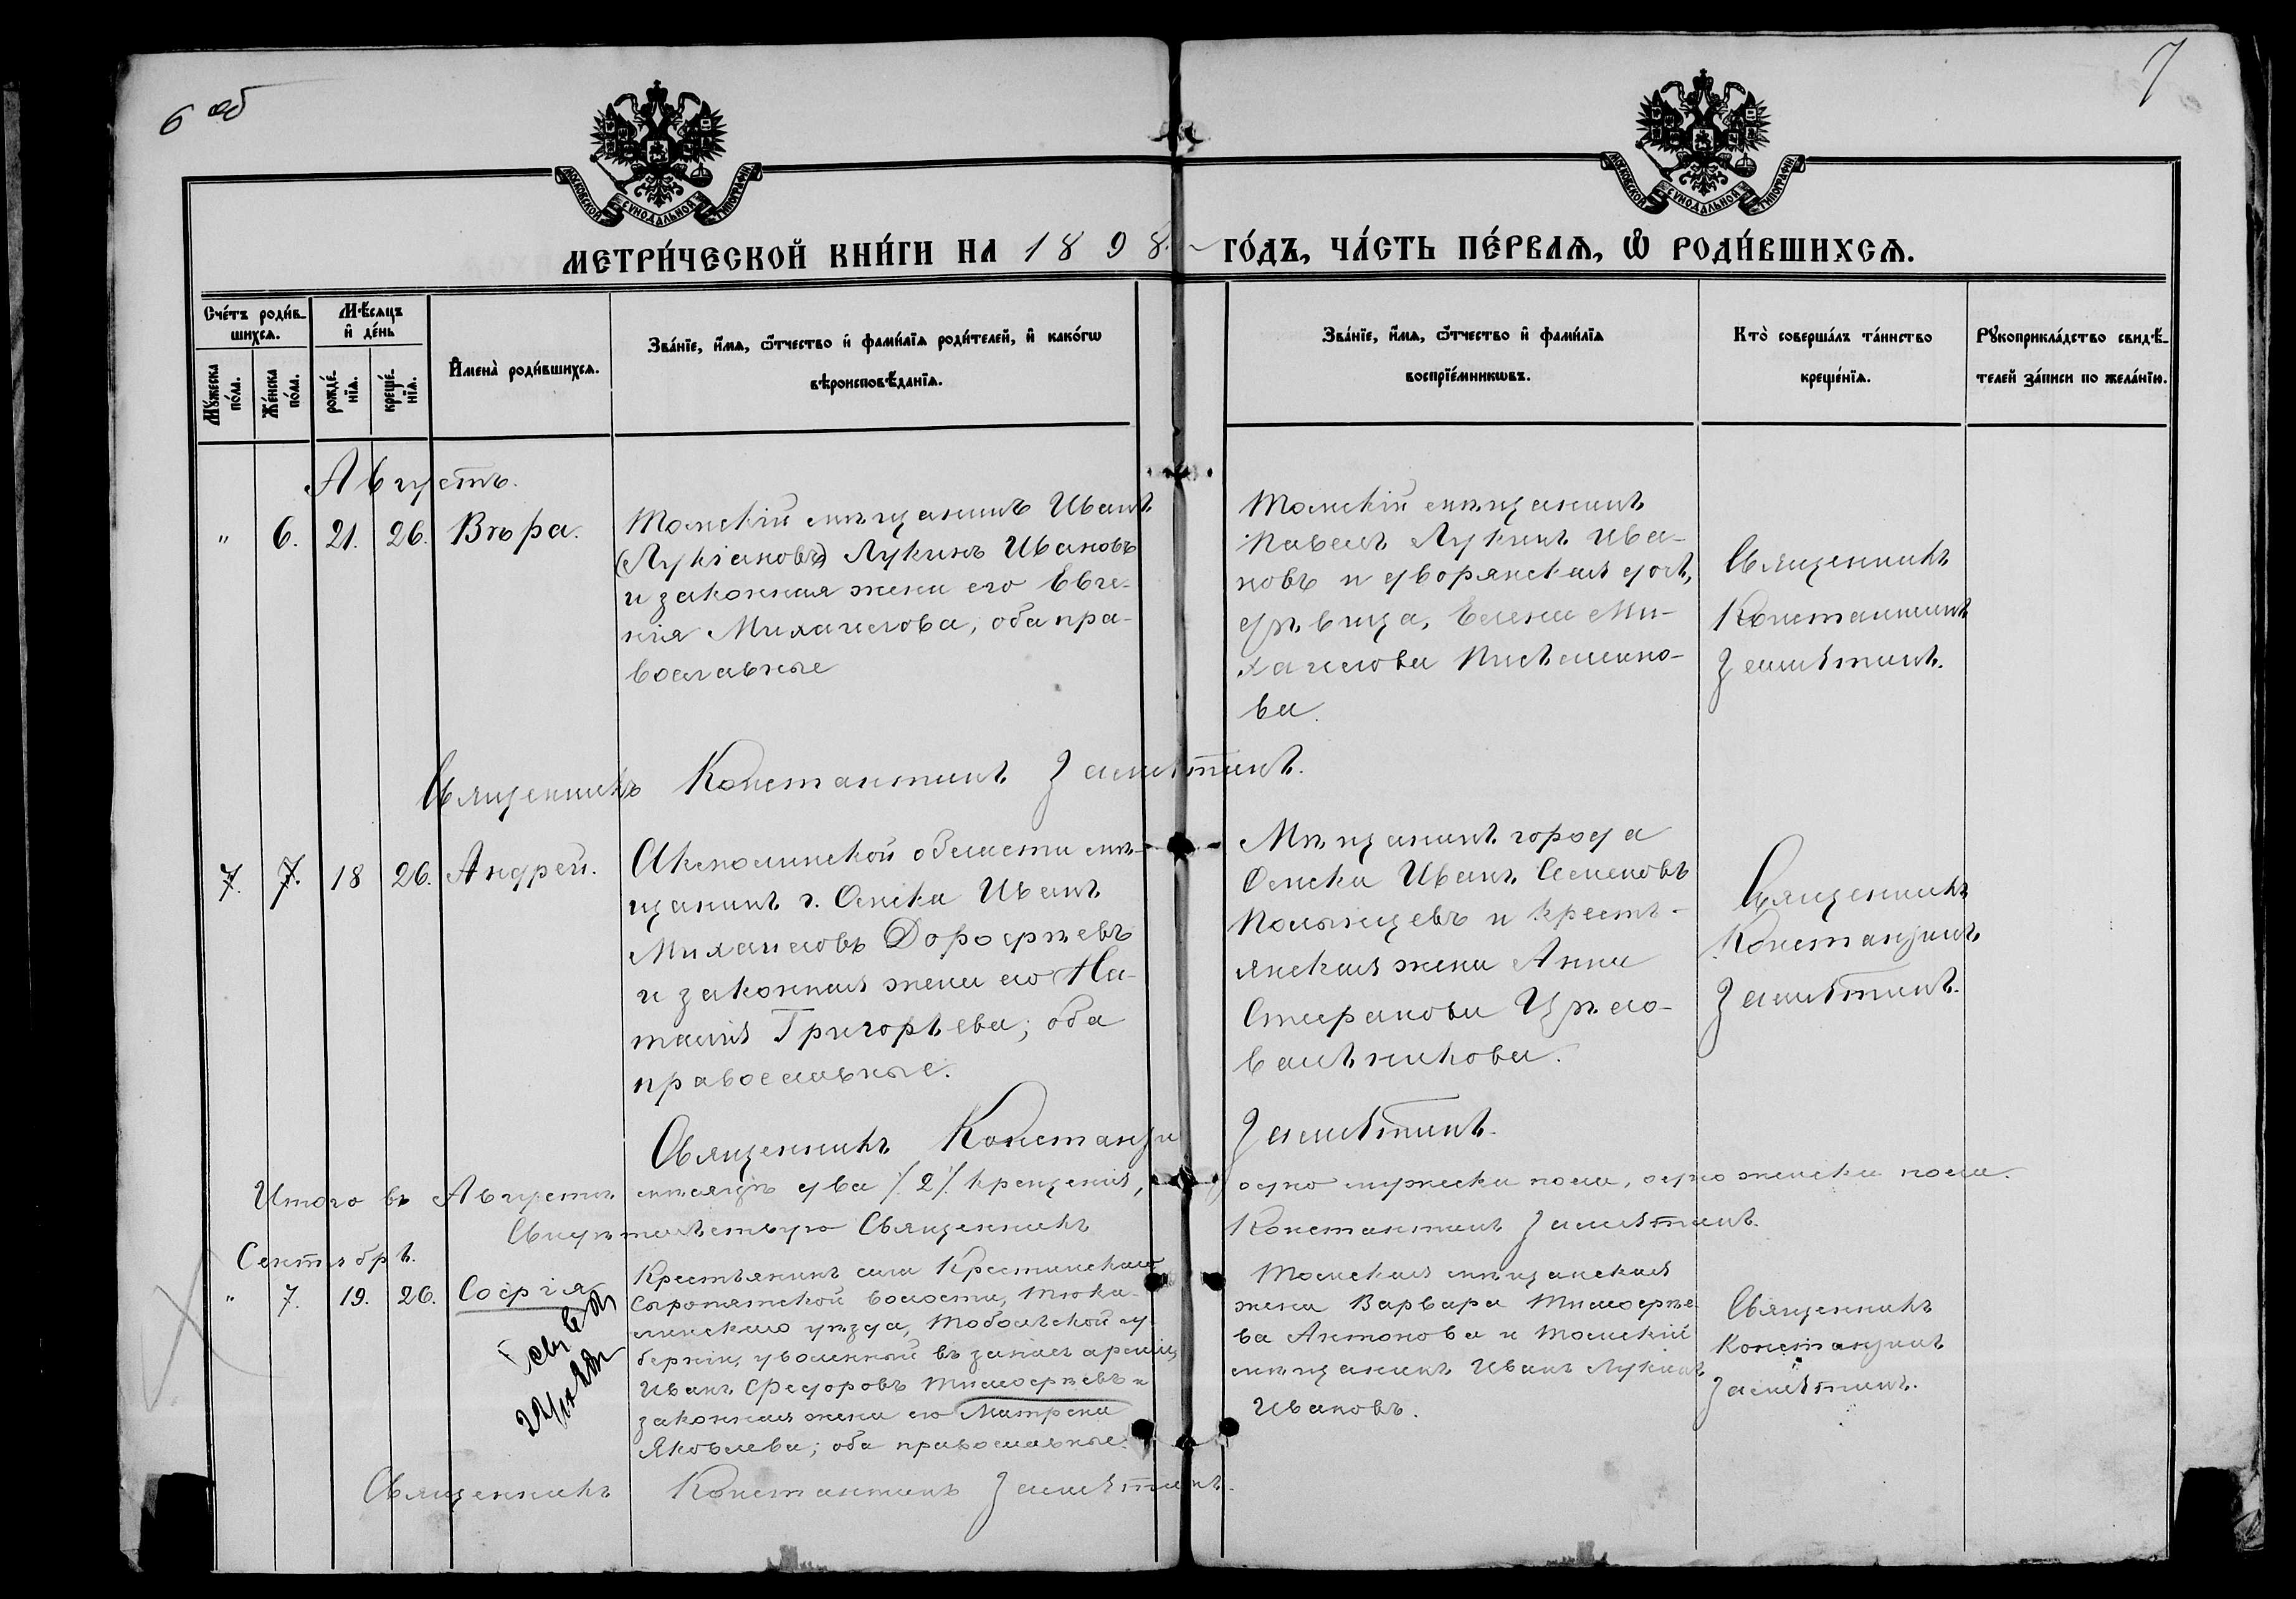 6 об
7
МОСКОВСКОЙ СѴНОДАЛЬНОЙ ТИПОГРАФІИ
МОСКОВСКОЙ СѴНОДАЛЬНОЙ ТИПОГРАФІИ
МЕТРИ́ЧЕСКОЙ КНИ́ГИ НА 1898 ГО́ДЪ, ЧА́СТЬ ПЕ́РВАѦ, Ѡ РОДИ́ВШИХСѦ.
Сче́тъ роди́в-
шихсѧ.
Мꙋжеска по́ла.
Же́нска по́ла.
Мѣ́сѧцъ
и҆ де́нь
рожде́-нїѧ.
креще́-нїѧ.
И҆мена̀ роди́вшихсѧ.
Зва́нїе, и҆́мѧ, ѻ҆́тчество и҆ фами́лїѧ роди́телей, и҆ како́гѡ
вѣроисповѣ́данїѧ.
Зва́нїе, и҆́мѧ, ѻ҆́тчество и҆ фами́лїѧ
воспрїе́мникѡвъ.
Кто̀ соверша́лъ та́инство
креще́нїѧ.
Рꙋкоприкла́дство свидѣ́-
телей за́писи по жела́нїю.
Августъ.
" 6. 21. 26. Вѣра.
Томскій мѣщанинъ Иванъ
(Лукіановъ) Лукинъ Ивановъ
и законная жена его Евге-
нія Михаилова; оба пра-
вославные
Томскій мѣщанинъ
Павелъ Лукинъ Ива-
новъ и дворянская дочь,
дѣвица, Елена Ми-
хаилова Письменно-
ва.
Священникъ
Константинъ
Замятинъ.
Священникъ Константинъ Замятинъ.
7. 7. 18 26. Андрей.
Акмолинской области мѣ-
щанинъ г. Омска Иванъ
Михаиловъ Дорофѣевъ
и законная жена его На-
талія Григорьева; оба
православные.
Мѣщанинъ города
Омска Иванъ Семеновъ
и кресть-
янская жена Анна
Стефанова Цѣло-
вальникова.
Священникъ
Константинъ
Замятинъ.
Священникъ Константинъ Замятинъ.
Итого въ Августѣ мѣсяцѣ два /2/ крещенія, одно мужеска пола, одно женска пола.
Свидѣтельствую Священникъ Константинъ Замятинъ.
Сентябрь.
" 7. 19. 26. Софія
Крестьянинъ села Крестинскаго
Сыропятской волости, Тюка-
линскаго уѣзда, Тобольской гу-
берніи, уволенный въ запасъ арміи,
Иванъ Федоровъ Тимофѣевъ и
законная жена его Матрена
Яковлева; оба православные.
Томская мѣщанская
жена Варвара Тимофѣе-
ва Антонова и Томскій
мѣщанинъ Иванъ Лукинъ
Ивановъ.
Священникъ
Константинъ
Замятинъ.
Священникъ Константинъ Замятинъ.